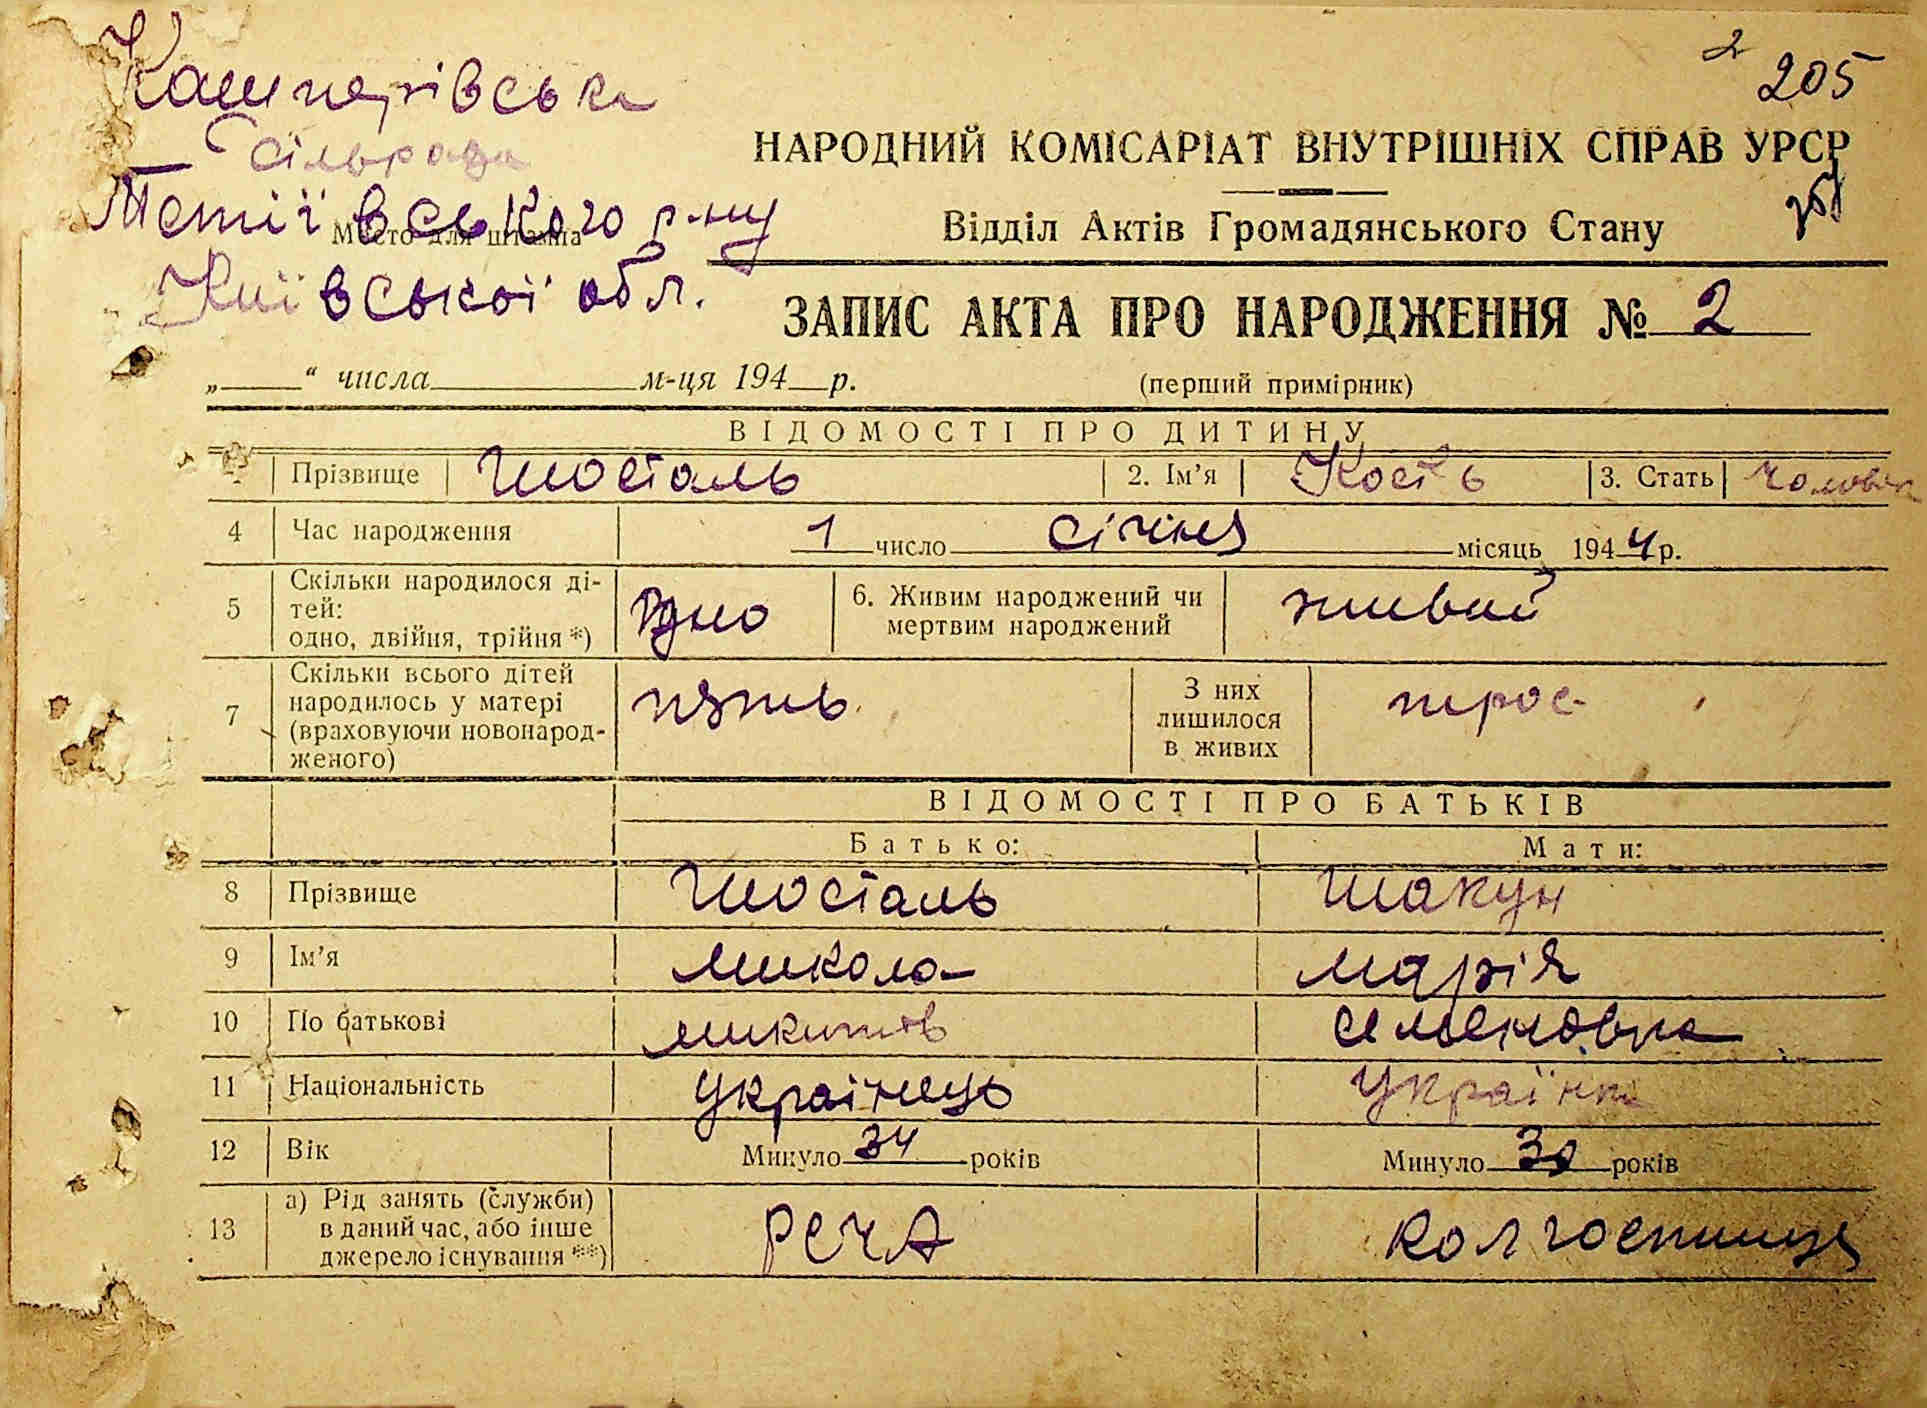 Кашперівська
2 205
сільрада
НАРОДНИЙ КОМІСАРІАТ ВНУТРІШНІХ СПРАВ УРСР
Тетіївського р-ну
Место для штампа
Відділ Актів Громадянського Стану
Київської обл.
ЗАПИС АКТА ПРО НАРОДЖЕННЯ № 2
„ “ числа м-ця 194 р. (перший примірник)
ВІДОМОСТІ ПРО ДИТИНУ
Прізвище Шосталь 2. Ім’я Кость 3. Стать чоловіч
4 Час народження 1 число січня місяць 1944 р.
5 Скільки народилося ді-
тей:
одно, двійня, трійня *) одно 6. Живим народжений чи
мертвим народжений живий
7 Скільки всього дітей
народилось у матері
(враховуючи новонарод-
женого) пять З них
лишилося
в живих троє
ВІДОМОСТІ ПРО БАТЬКІВ
Батько: Мати:
8 Прізвище Шосталь Шакун
9 Ім’я Микола Марія
10 По батькові Микитов Семеновна
11 Національність Українець Українка
12 Вік Минуло 34 років Минуло 30 років
13 а) Рід занять (служби)
в даний час, або інше
джерело існування **) РСЧА колгоспниця